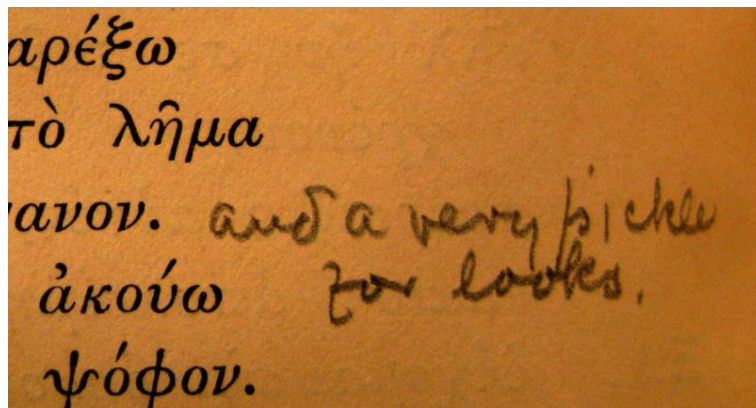 αρέξω
τὸ λῆμα
ανον. and a very pickle
ἀκούω for looks.
ψόφον.